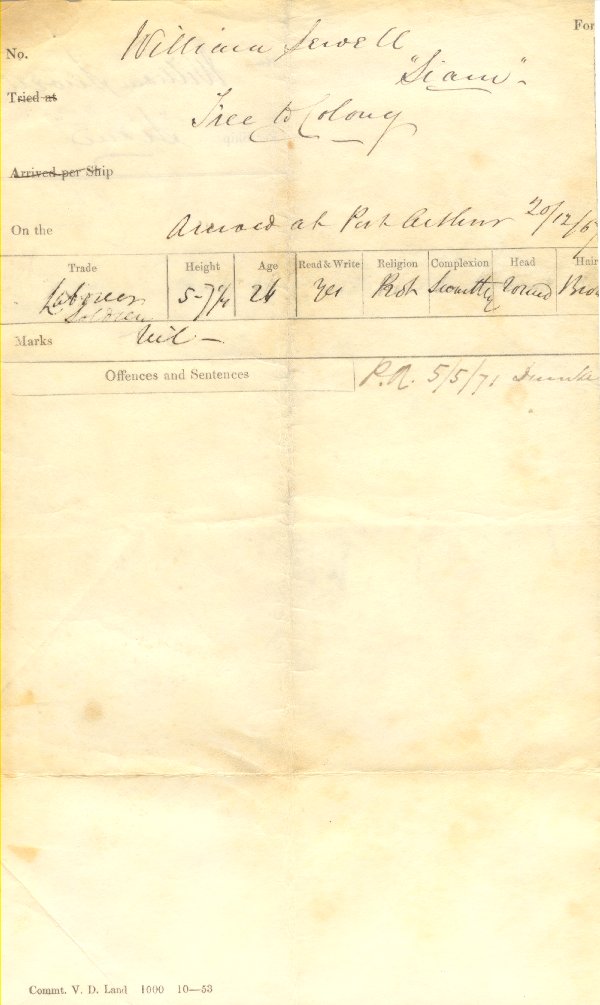 For
No. William Sewell
"Siam"-
Tried at
Free to Colony
Arrived per Ship
On the Arrived at Port Arthur 20/12/67
Trade Height Age Read & Write Religion Complexion Head Hair
Labourer 5-7¼ 26 Yes Swarthy round Brow
Soldier
Marks Nil -
Offences and Sentences P.A. 5/5/71
Commt. V. D. Land 1000 10—53